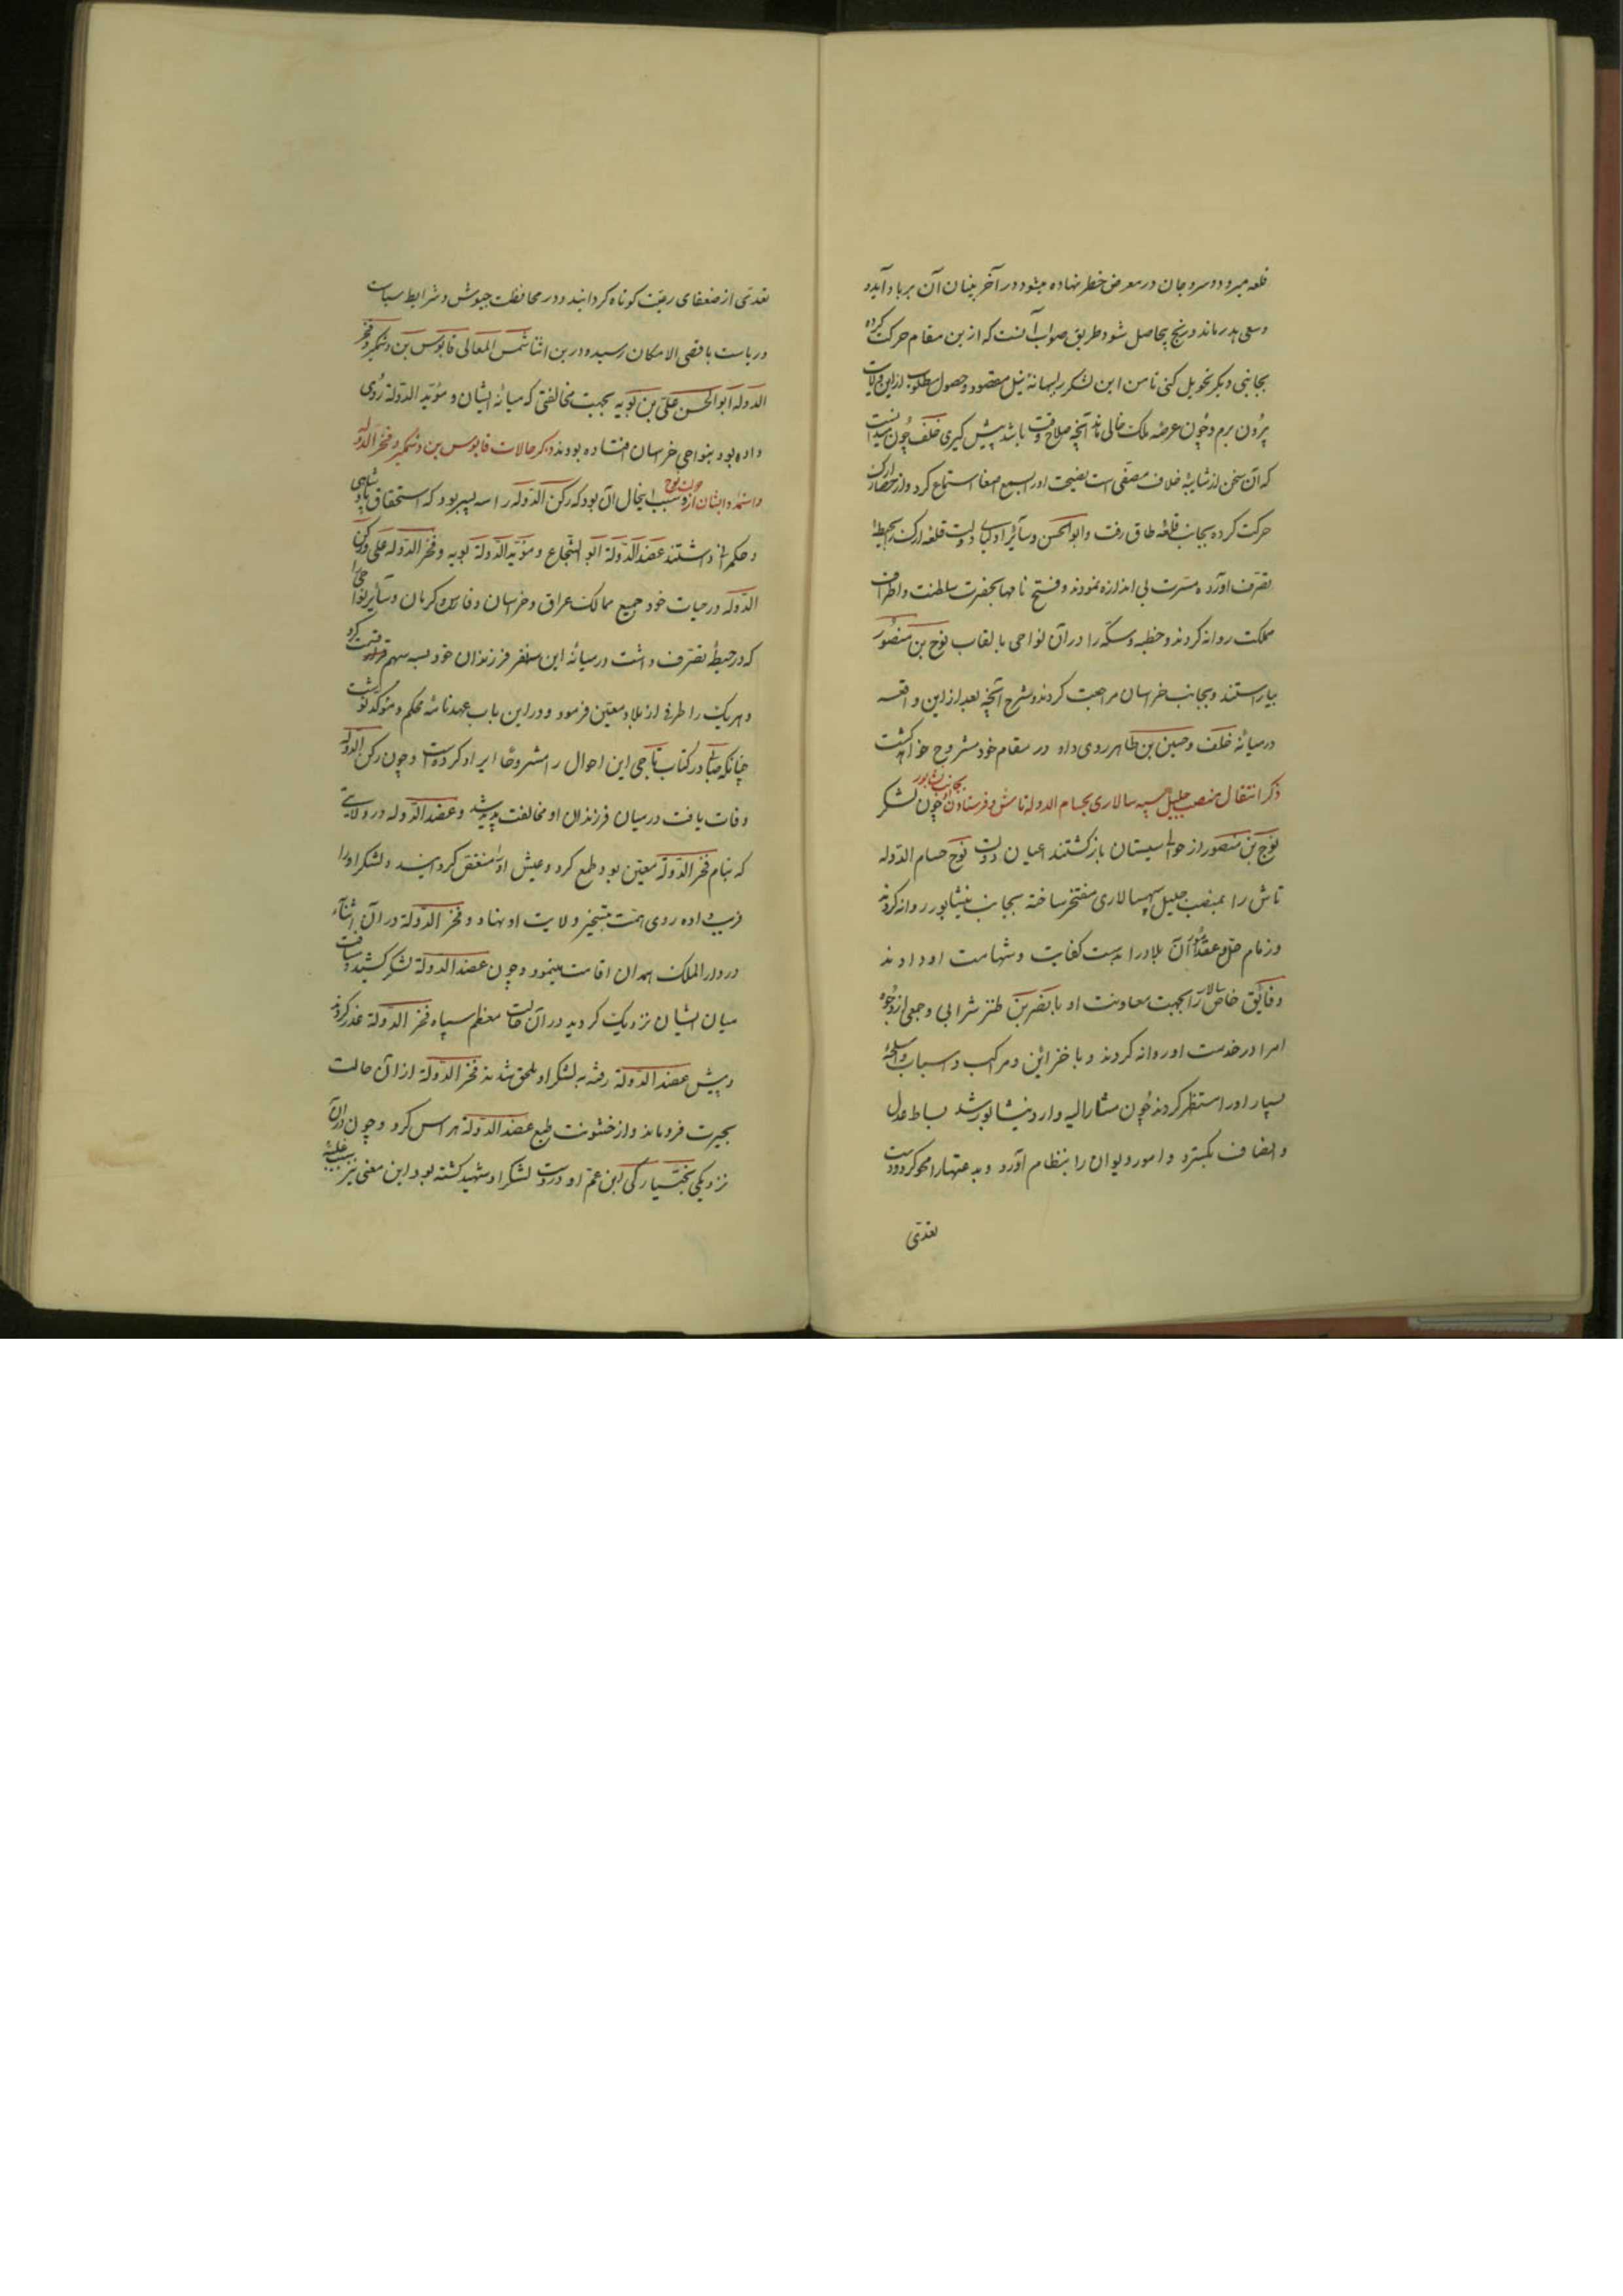 قلعه میرود و سر و جان در معرض خطر نهاده میشود در آخر بنیان آن بر باد آید و
و سعی هدر ماند و رنج بیحاصل شود طریق صواب آنست که ازین مقام حرکت کرده
بجانبی دیکر تحویل کنی تا من این لشکر را ببهانهٔ نیل مقصود و حصول مطلوب ازین ولایت
برون برم و چون عرصه ملک خالی ماند آنچه صلاح وقت باشد پیش کیری خلف چون میدانست
که آن سخن از شایبهٔ خلاف مصفی است نصیحت او را بسمع اصغا استماع کرد و از حصار ارک
حرکت کرده بجانب قلعهٔ طاق رفت و ابوالحسن و سایر اولیای دولت قلعه ارک را بحیطهٔ
تصرف آورده مسرت بی اندازه نمودند و فتح نامها بحضرت سلطنت و اطراف
مملکت روانه کردند و خطبه و سکه را در آن نواحی بالقاب نوح بن منصور
بیاراستند و بجانب خراسان مراجعت کردند و شرح آنچه بعد از این واقعه
در میانهٔ خلف و حسین بن طاهر روی داد در مقام خود مشروح خواهد کشت
ذکر انتقال منصب جلیل سپه سالاری بحسام الدوله تاش و فرستادن بجانب نیشابور چون لشکر
نوح بن منصور از حوالی سیستان بازکشتند اعیان دولت نوح حسام الدوله
تاش را بمنصب جلیل سپهسالاری مفتخر ساخته بجانب نیشابور روانه کردند
و زمام حل و عقد امور آن بلاد را بدست کفایت و شهامت او دادند
و فائق خاص سالار را بجهت معاونت او با نصر بن طنز شرابی و جمعی از وجوه
امرا در خدمت او روانه کردند و با خزاین و مراکب و اسباب و اسلحهٔ
بسیار او را مستظهر کردند چون مشارالیه وارد نیشابور شد بساط عدل
و انصاف بکسترد و امور دیوان را بنظام آورد و بدعتها را محو کرد و دست
تعدی
تعدی از ضعفای رعیت کوتاه کردانید و در محافظت جیوش و شرایط سیاست
و ریاست باقصی الامکان رسید و درین اثنا شمس المعالی قابوس بن وشمکیر و فخر
الدوله ابوالحسن علی بن بویه بجهت مخالفتی که میانهٔ ایشان و مؤید الدوله روی
داده بود بنواحی خراسان افتاده بودند ذکر حالات قابوس بن وشمکیر و فخر الدوله
و استمداد ایشان از نوح سبب اینحال آن بود که رکن الدوله را سه پسر بود که استحقاق پادشاهی
و حکمرانی داشتند عضد الدوله ابوالشجاع و مؤید الدوله بویه و فخر الدوله علی و رکن
الدوله در حیات خود جمیع ممالک عراق و خراسان و فارس و کرمان و سایر نواحی را
که در حیطهٔ تصرف داشت در میانه این سه نفر فرزندان خود بسه سهم قسمت کرد
و هر یک را طرفی از بلاد معین فرمود و در این باب عهدنامهٔ محکم و موکد نوشت
چنانکه صابی در کتاب تاجی این احوال را مشروحا ایراد کرده است و چون رکن الدوله
وفات یافت در میان فرزندان او مخالفت پدید شد و عضد الدوله در ولایتی
که بنام فخر الدوله معین بود طمع کرد و عیش او را منغص کردانید و لشکر او را
فریب داده روی همت بتسخیر ولایت او نهاد و فخر الدوله در آن اثنآء
در دار الملک همدان اقامت مینمود و چون عضد الدوله لشکر کشید و مسافت
میان ایشان نزدیک کردید در آن حالت معظم سپاه فخر الدوله غدر کردند
و پیش عضد الدوله رفته بلشکر او ملحق شدند فخر الدوله از آن حالت
بحیرت فروماند و از خشونت طبع عضد الدوله هراس کرد و چون در آن
نزدیکی بختیار که ابن عم او در دست لشکر او شهید کشته بود و این معنی نیز سبب غلبهٔ